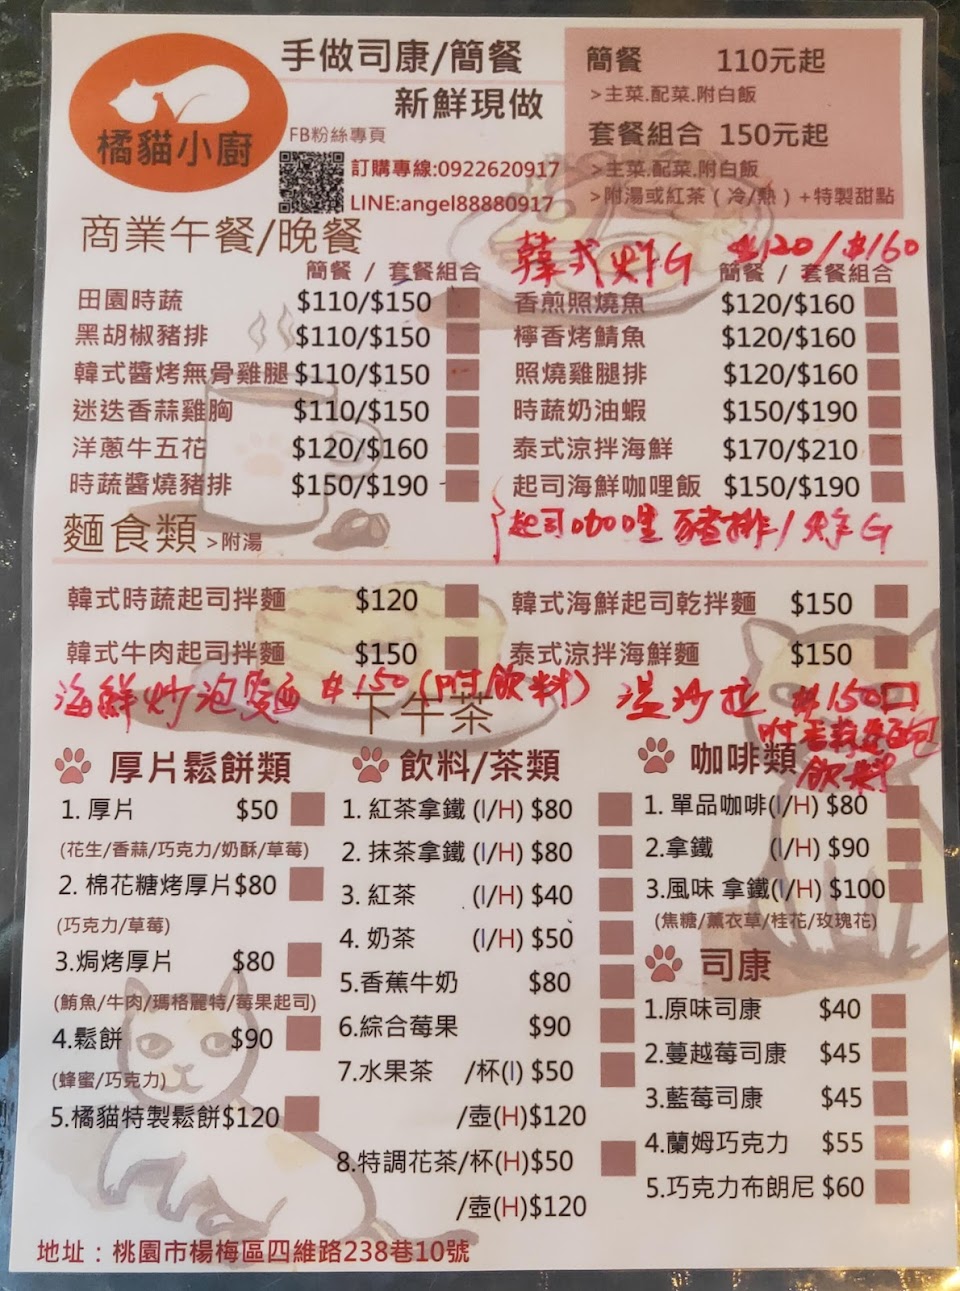 橘貓小廚
手做司康/簡餐
新鮮現做
FB粉絲專頁
訂購專線:0922620917
LINE:angel88880917
簡餐 110元起
>主菜.配菜.附白飯
套餐組合 150元起
>主菜.配菜.附白飯
>附湯或紅茶(冷/熱)+特製甜點
商業午餐/晚餐
簡餐 / 套餐組合
田園時蔬 $110/$150
黑胡椒豬排 $110/$150
韓式醬烤無骨雞腿 $110/$150
迷迭香蒜雞胸 $110/$150
洋蔥牛五花 $120/$160
時蔬醬燒豬排 $150/$190
韓式炸G $120/$160
簡餐 / 套餐組合
香煎照燒魚 $120/$160
檸香烤鯖魚 $120/$160
照燒雞腿排 $120/$160
時蔬奶油蝦 $150/$190
泰式涼拌海鮮 $170/$210
起司海鮮咖哩飯 $150/$190
起司咖哩豬排/炸G
麵食類 >附湯
韓式時蔬起司拌麵 $120
韓式牛肉起司拌麵 $150
韓式海鮮起司乾拌麵 $150
泰式涼拌海鮮麵 $150
海鮮炒泡麵 $150(附飲料)
溫沙拉 $150
附香蒜麵包
飲料
下午茶
厚片鬆餅類
1. 厚片 $50
(花生/香蒜/巧克力/奶酥/草莓)
2. 棉花糖烤厚片$80
(巧克力/草莓)
3.焗烤厚片 $80
(鮪魚/牛肉/瑪格麗特/莓果起司)
4.鬆餅 $90
(蜂蜜/巧克力)
5.橘貓特製鬆餅$120
飲料/茶類
1. 紅茶拿鐵 (I/H) $80
2. 抹茶拿鐵 (I/H) $80
3. 紅茶 (I/H) $40
4. 奶茶 (I/H) $50
5.香蕉牛奶 $80
6.綜合莓果 $90
7.水果茶 /杯(I) $50
/壺(H)$120
8.特調花茶/杯(H)$50
/壺(H)$120
咖啡類
1. 單品咖啡(I/H) $80
2.拿鐵 (I/H) $90
3.風味 拿鐵(I/H) $100
(焦糖/薰衣草/桂花/玫瑰花)
司康
1.原味司康 $40
2.蔓越莓司康 $45
3.藍莓司康 $45
4.蘭姆巧克力 $55
5.巧克力布朗尼 $60
地址：桃園市楊梅區四維路238巷10號